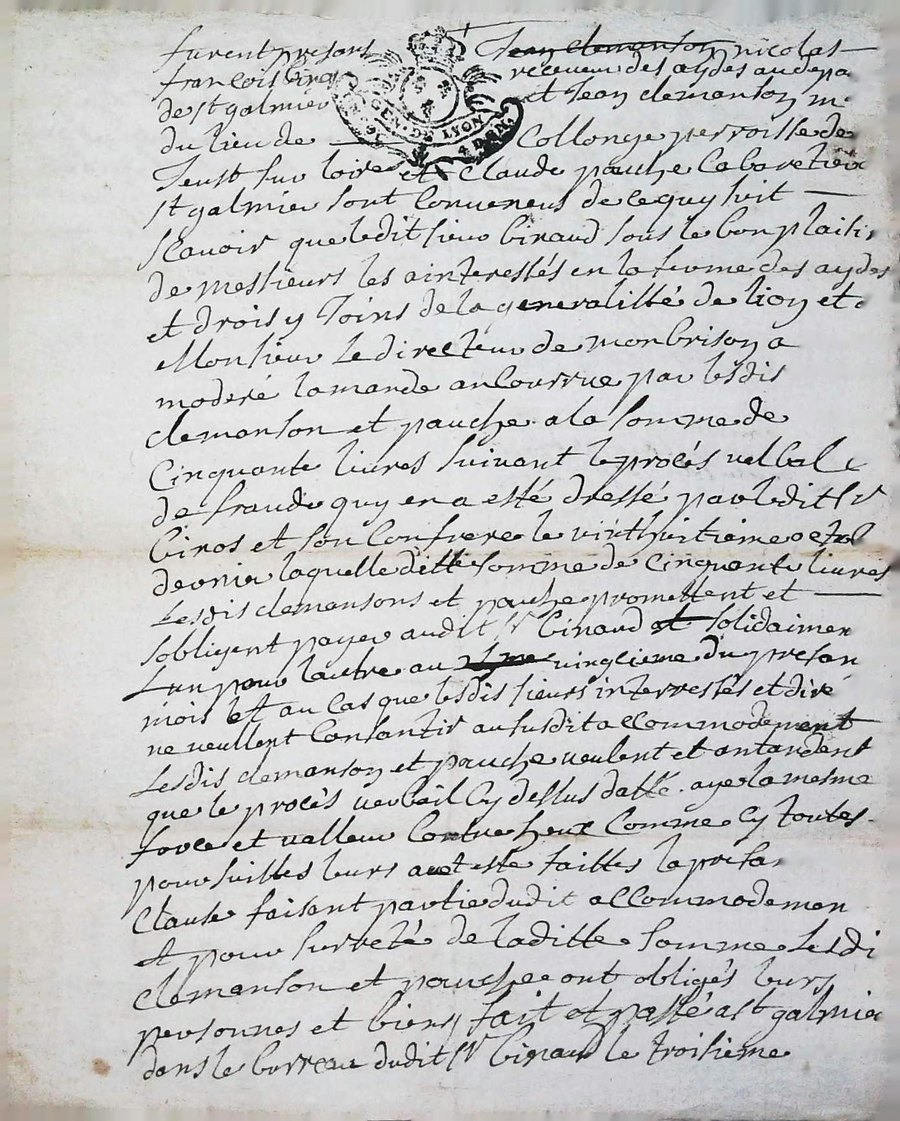 furent presans Jean Clemenson nicolas
francois receveur des aydes au depa
de st galmier et Jean clemanson m
du lieu de Collonge perroisse de
sur loire et Claude pouche Cabaretier
st galmier sont Convenus de ce quy suit
Scavoir que ledit sieur biraud sous le bon plaisir
de messieurs les ainteressés en la ferme des aydes
et drois y Joins de la generallitté de lion et
Monsieur le directeur de monbrison a
moderé lamande ancourrue par lesdis
clemanson et pouche a la somme de
Cinquante livres suivant le procés velbal
de fraude quy en a esté dressé par ledit Sr
biros et son Confrere le vinthuitieme octob
dernier laquelle ditte somme de cinquante livres
Lesdis clemansons et pouche promettent et
sobligent payer audit Sr biraud et solidairmen
Lun pour lautre au vingtieme du presan
mois et au cas que lesdis sieurs interressés et dire
ne veullent Consantir au susdit accommodement
Lesdis clemanson et pouche veulent et antandent
que le procés verbail Cy dessus datté aye la mesme
force et valleur Contre heux Comme sy toutes
poursuittes leurs avet esté faittes la presan
Clause faisant partie dudit accommodemen
et pour surreté de laditte somme Lesdi
clemanson et pouche ont obligés leurs
personnes et biens fait et passé a st galmier
dans le burreau dudit Sr biraud le troisieme
GEN. DE LYON